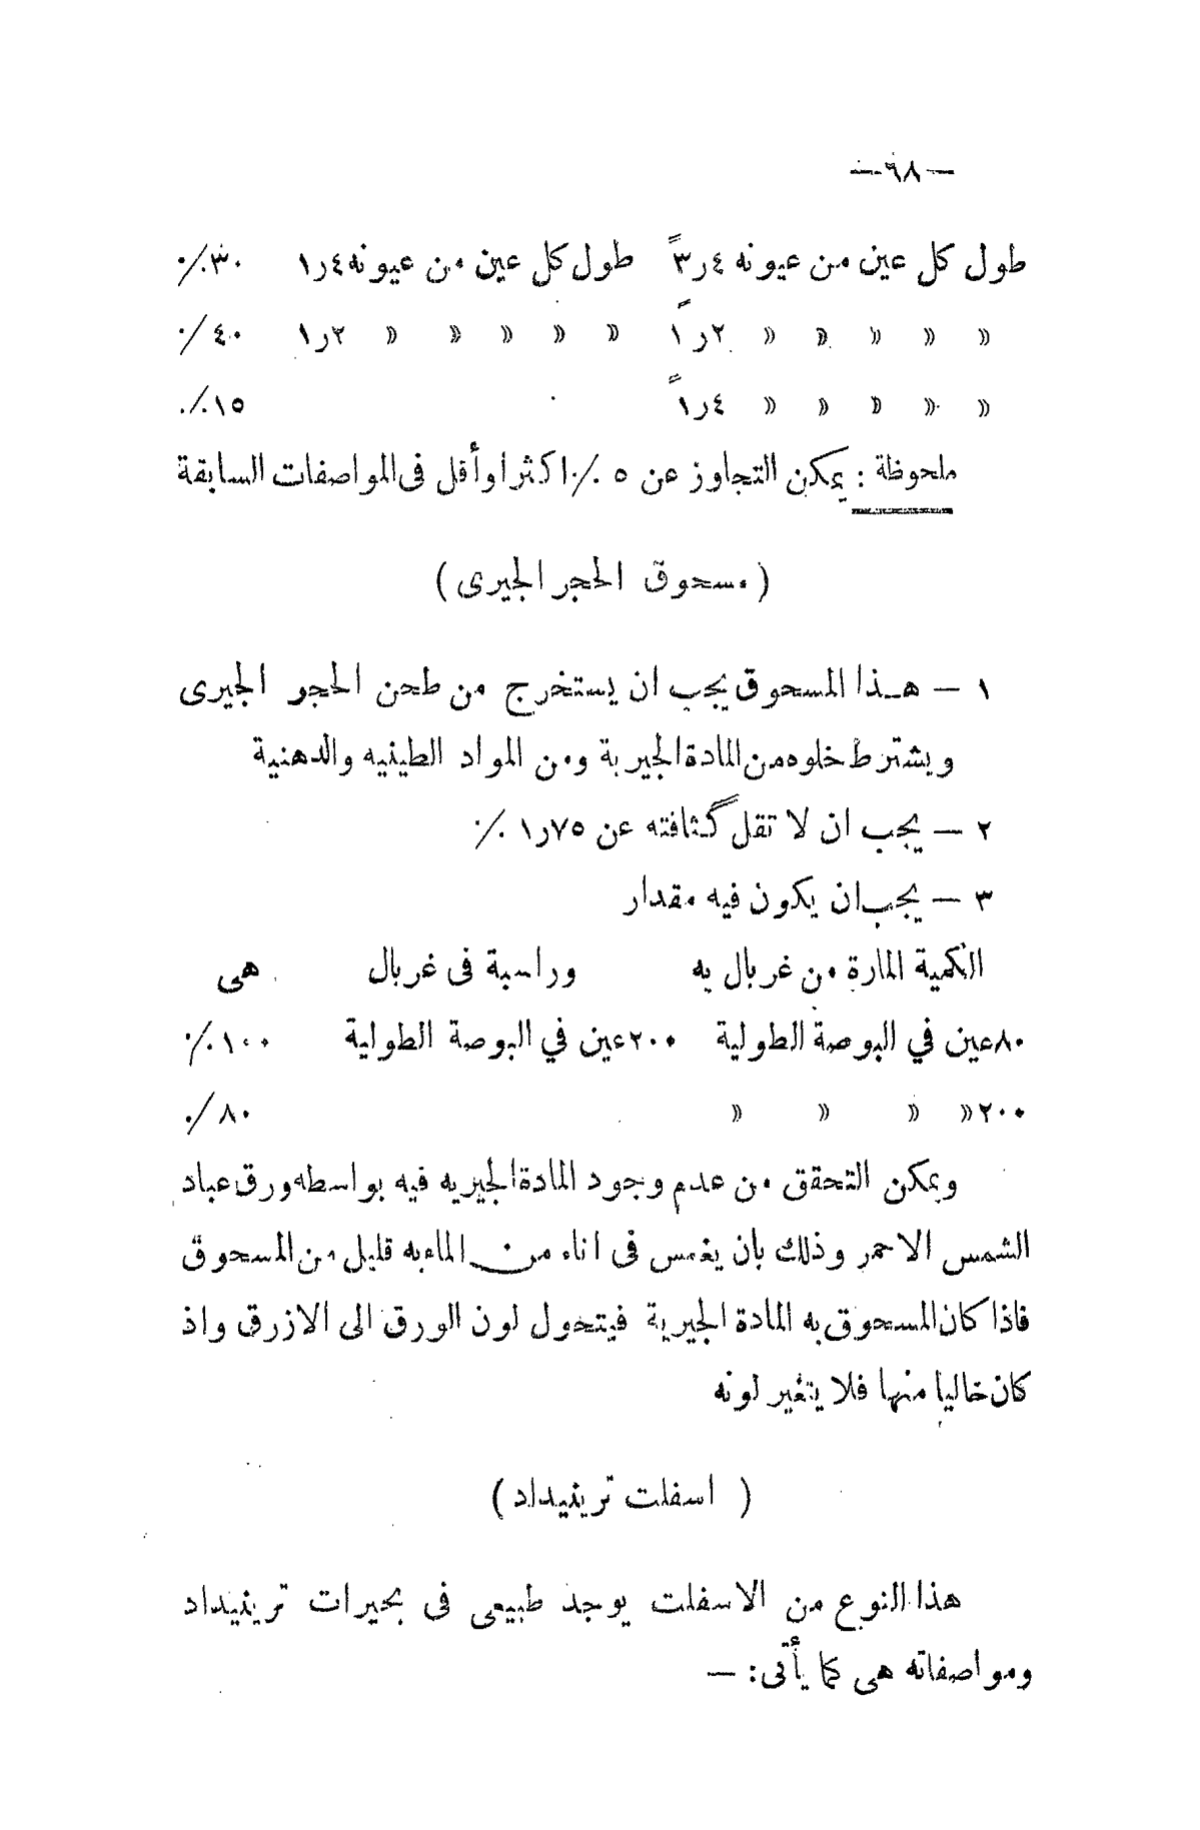 —٩٨—
طول كل عين من عيونه ٤ر٣ً طول كل عين من عيونه ٤ر١ ٣٠٪
» » » » » ٢ر١ً » » » » » ٢ر١ ٤٠٪
» » » » » ٤ر١ً ١٥٪
ملحوظة : يمكن التجاوز عن ٥ ٪ اكثر أو أقل فى المواصفات السابقة
( مسحوق الحجر الجيرى )
١ — هـذا المسحوق يجب ان يستخرج من طحن الحجر الجيرى
ويشترط خلوه من المادة الجيرية ومن المواد الطينيه والدهنية
٢ — يجب ان لا تقل كثافته عن ٧٥ر١ ٪
٣ — يجب ان يكون فيه مقدار
الكمية المارة من غربال به وراسبة فى غربال هى
٨٠عين في البوصة الطولية ٢٠٠عين في البوصة الطولية ١٠٠٪
٢٠٠ » » » » ٨٠٪
ويمكن التحقق من عدم وجود المادة الجيريه فيه بواسطه ورق عباد
الشمس الاحمر وذلك بان يغمس فى اناء من الماء به قليل من المسحوق
فاذا كان المسحوق به المادة الجيرية فيتحول لون الورق الى الازرق واذ
كان خاليا منها فلا يتغير لونه
( اسفلت ترينيداد )
هذا النوع من الاسفلت يوجد طبيعى فى بحيرات ترينيداد
ومواصفاته هى كما يأتى : —